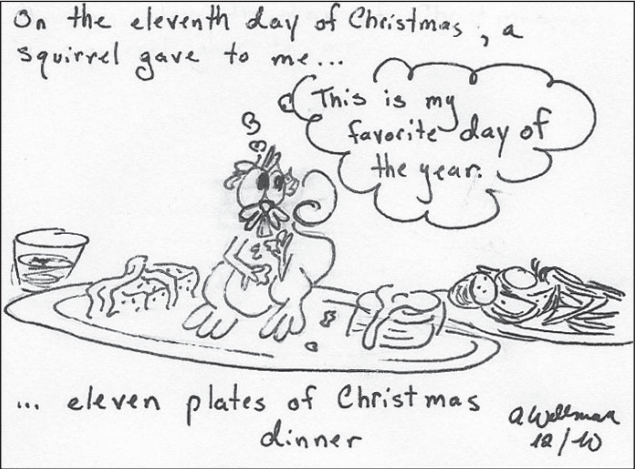 On the eleventh day of Christmas, a
squirrel gave to me...
This is my
favorite day of
the year.
... eleven plates of Christmas
dinner
A Wellman
12/10